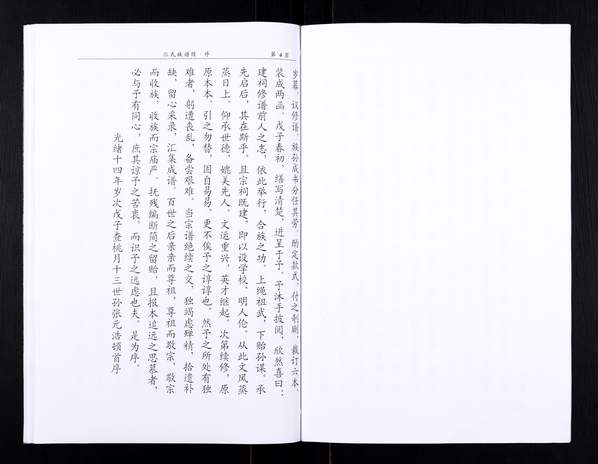 张氏族谱馆·序
第4页
岁暮，议修谱。族孙成书分任其劳，酌定款式，付之剞劂，裁订六本，
装成两函。戊子春初，缮写清楚，进呈于予。予沐手披阅，欣然喜曰：
建祠修谱前人之志，依此举行，合族之功，上绳祖武，下贻孙谋。承
先启后，其在斯乎。且宗祠既建，即以设学校，明人伦。从此文风蒸
蒸日上，仰承世德，媲美先人。文运重兴，英才继起。次第续修，原
原本本，引之勿替，固自易易，更不俟予之谆谆也。然予之所处有独
难者，躬遭丧乱，备尝艰难。当宗谱绝续之交，独竭虑殚精，拾遗补
缺，留心采录，汇集成谱。百世之后亲亲而尊祖，尊祖而敬宗，敬宗
而收族，收族而宗庙严。抚残编断简之留贻，且报本追远之思慕者，
必与予有同心，庶其谅予之苦衷，而识予之远虑也夫。是为序。
光绪十四年岁次戊子查桃月十三世孙张元浩顿首序